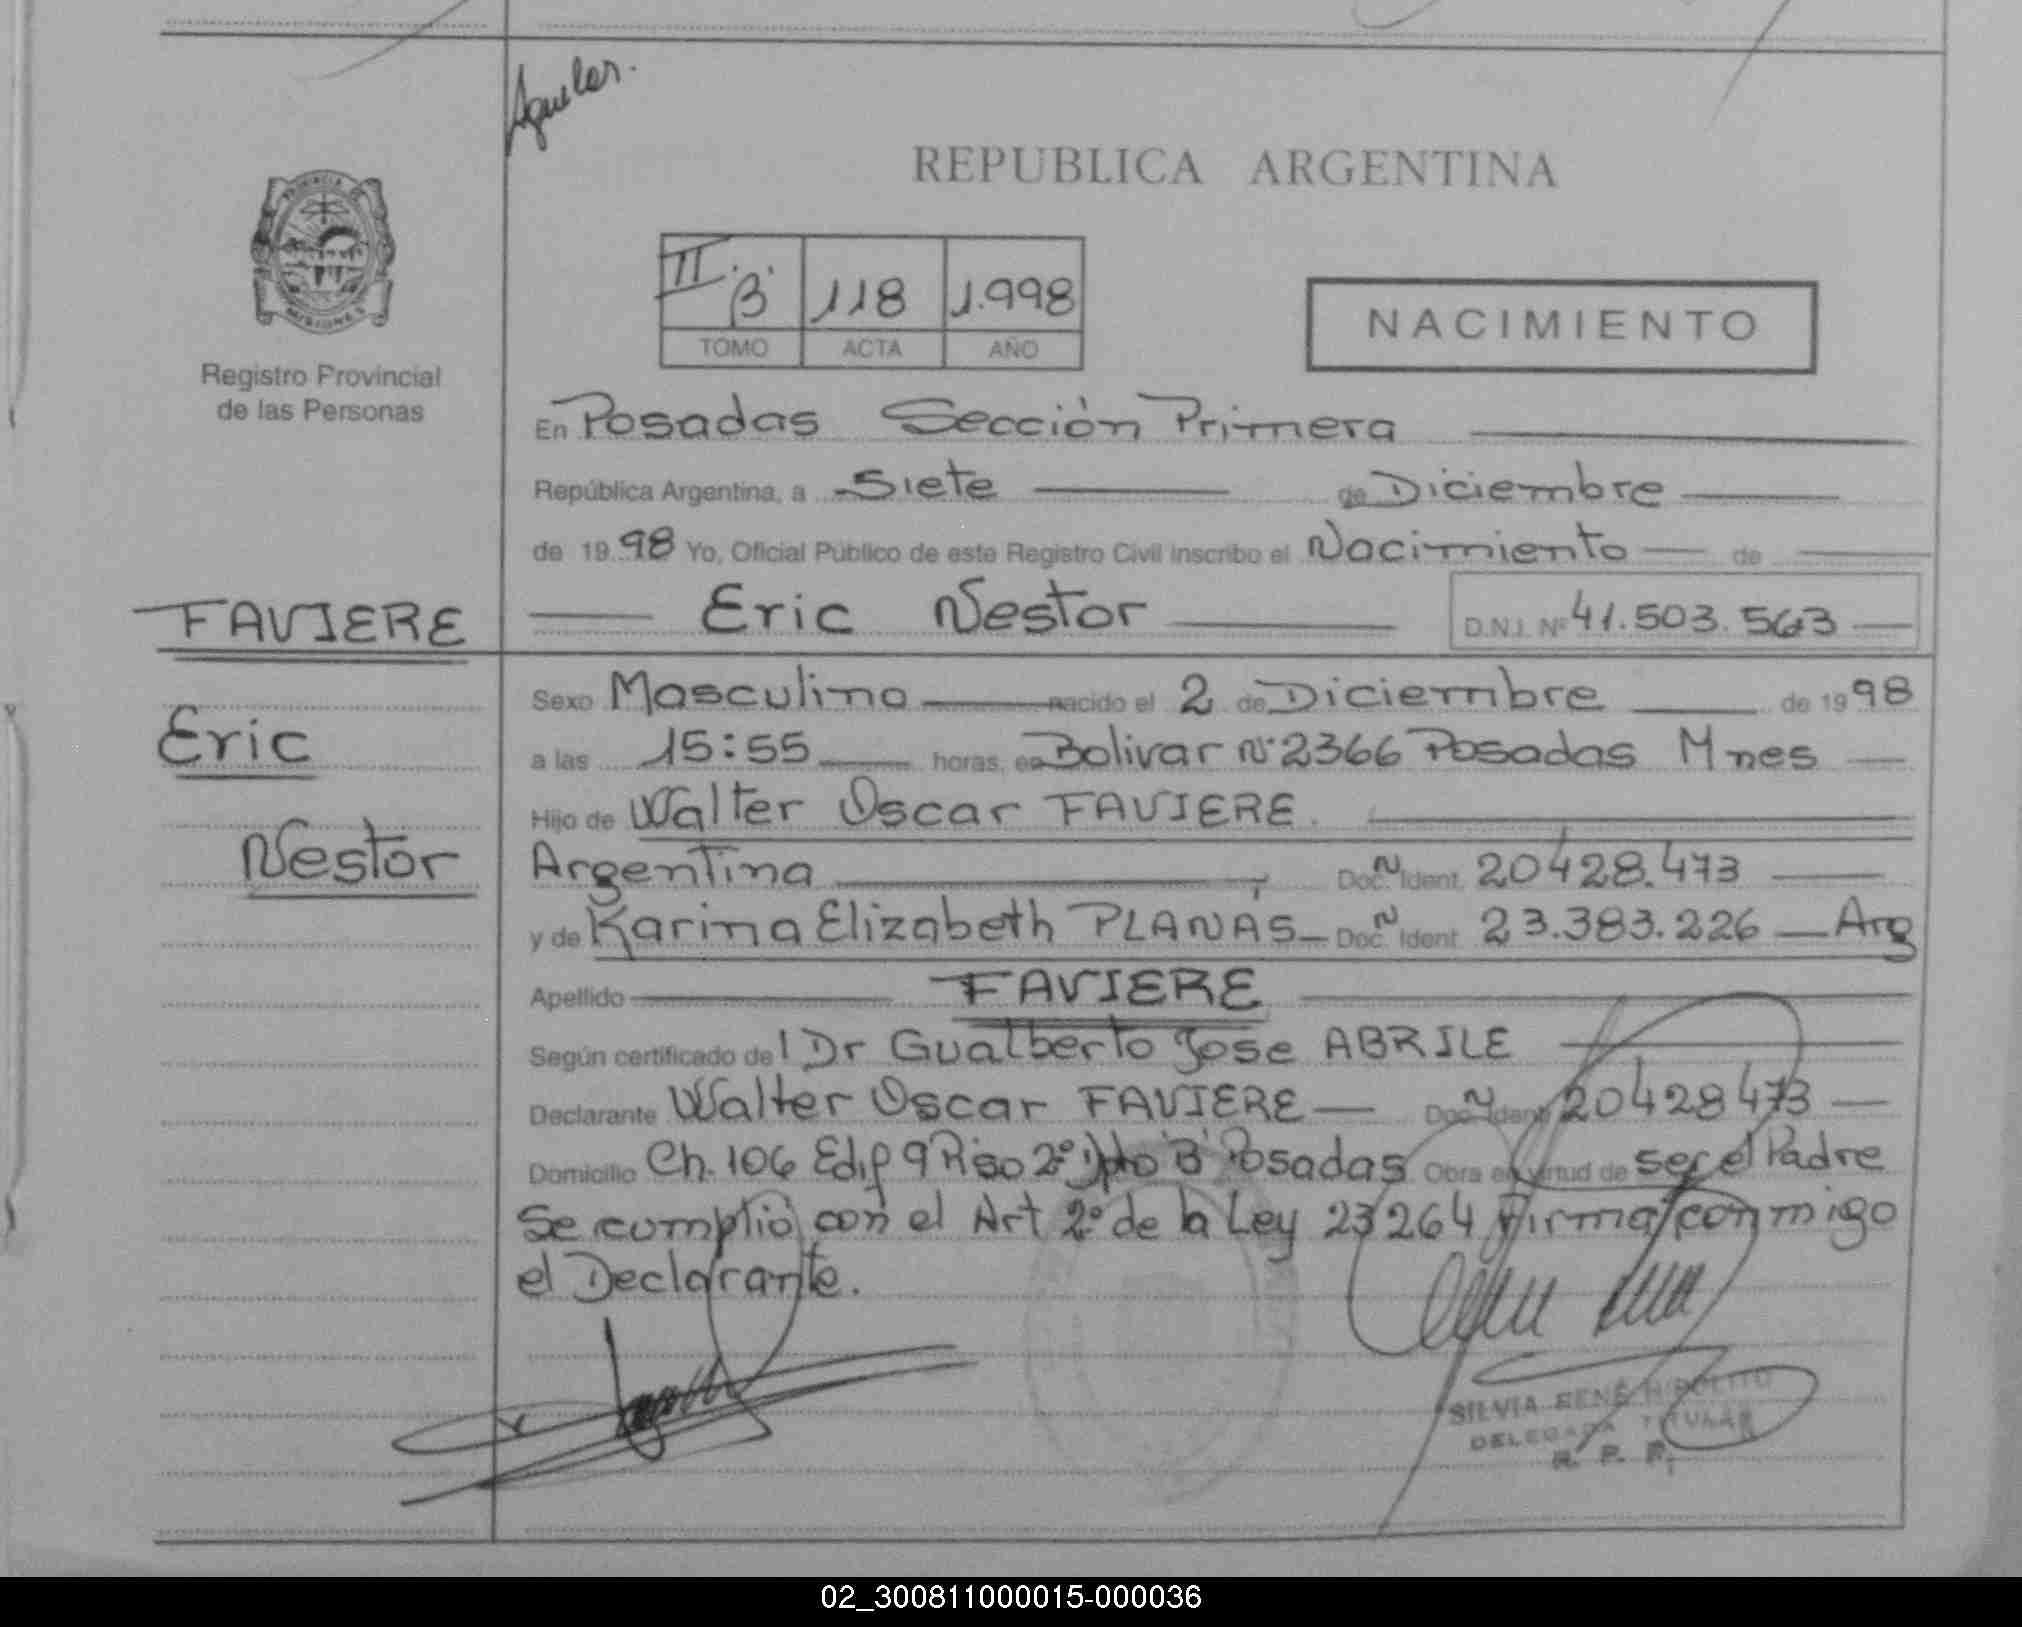 Aguilar.
REPUBLICA ARGENTINA
PROVINCIA DE
MISIONES
Registro Provincial
de las Personas
II "B" 118 1.998
TOMO ACTA AÑO
NACIMIENTO
En Posadas Sección Primera
República Argentina, a Siete de Diciembre
de 1998 Yo, Oficial Público de este Registro Civil inscribo el Nacimiento de
FAVIERE
Eric Nestor D.N.I. Nº 41.503.563
Sexo Masculino nacido el 2 de Diciembre de 1998
Eric
a las 15:55 horas, en Bolivar Nº 2366 Posadas Mnes
Hijo de Walter Oscar FAVIERE
Nestor
Argentina, Doc. N Ident. 20428.473
y de Karina Elizabeth PLANAS Doc. N Ident. 23.383.226 Arg
Apellido FAVIERE
Según certificado del Dr Gualberto Jose ABRILE
Declarante Walter Oscar FAVIERE Doc. N Ident. 20428473
Domicilio Ch. 106 Edif 9 Piso 2º Dpto "B" Posadas Obra en virtud de ser el Padre
Se cumplió con el Art 2º de la Ley 23264 Firma conmigo
el Declarante.
SILVIA RENÉ HIPOLITO
DELEGADA TITULAR
R. P. P.
02_300811000015-000036